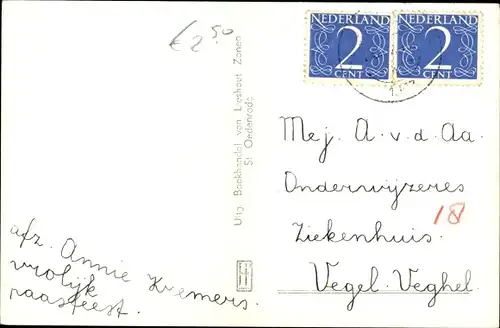 € 2.50
NEDERLAND
2
CENT
NEDERLAND
2
CENT
Uitg. Boekhandel van Lieshout Zonen
St. Oedenrode
Mej. A. v. d. Aa.
Onderwijzeres
Ziekenhuis.
Vegel. Veghel.
18
afz. Annie Kremers.
vrolijk
paasfeest.